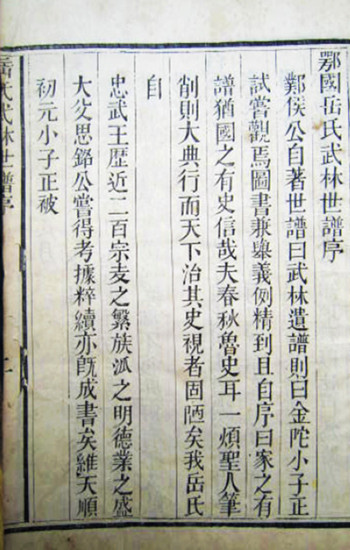 鄂國岳氏武林世譜序
鄴侯公自著世譜曰武林遺譜則曰金陀小子正
試嘗觀焉圖書兼舉義例精到且自序曰家之有
譜猶國之有史信哉夫春秋魯史耳一煩聖人筆
削則大典行而天下治其史視者固陋矣我岳氏
自
忠武王歷近二百宗支之繁族派之明德業之盛
大父思銘公嘗得考據粹續亦旣成書矣維天順
初元小子正被
岳氏武林世譜序